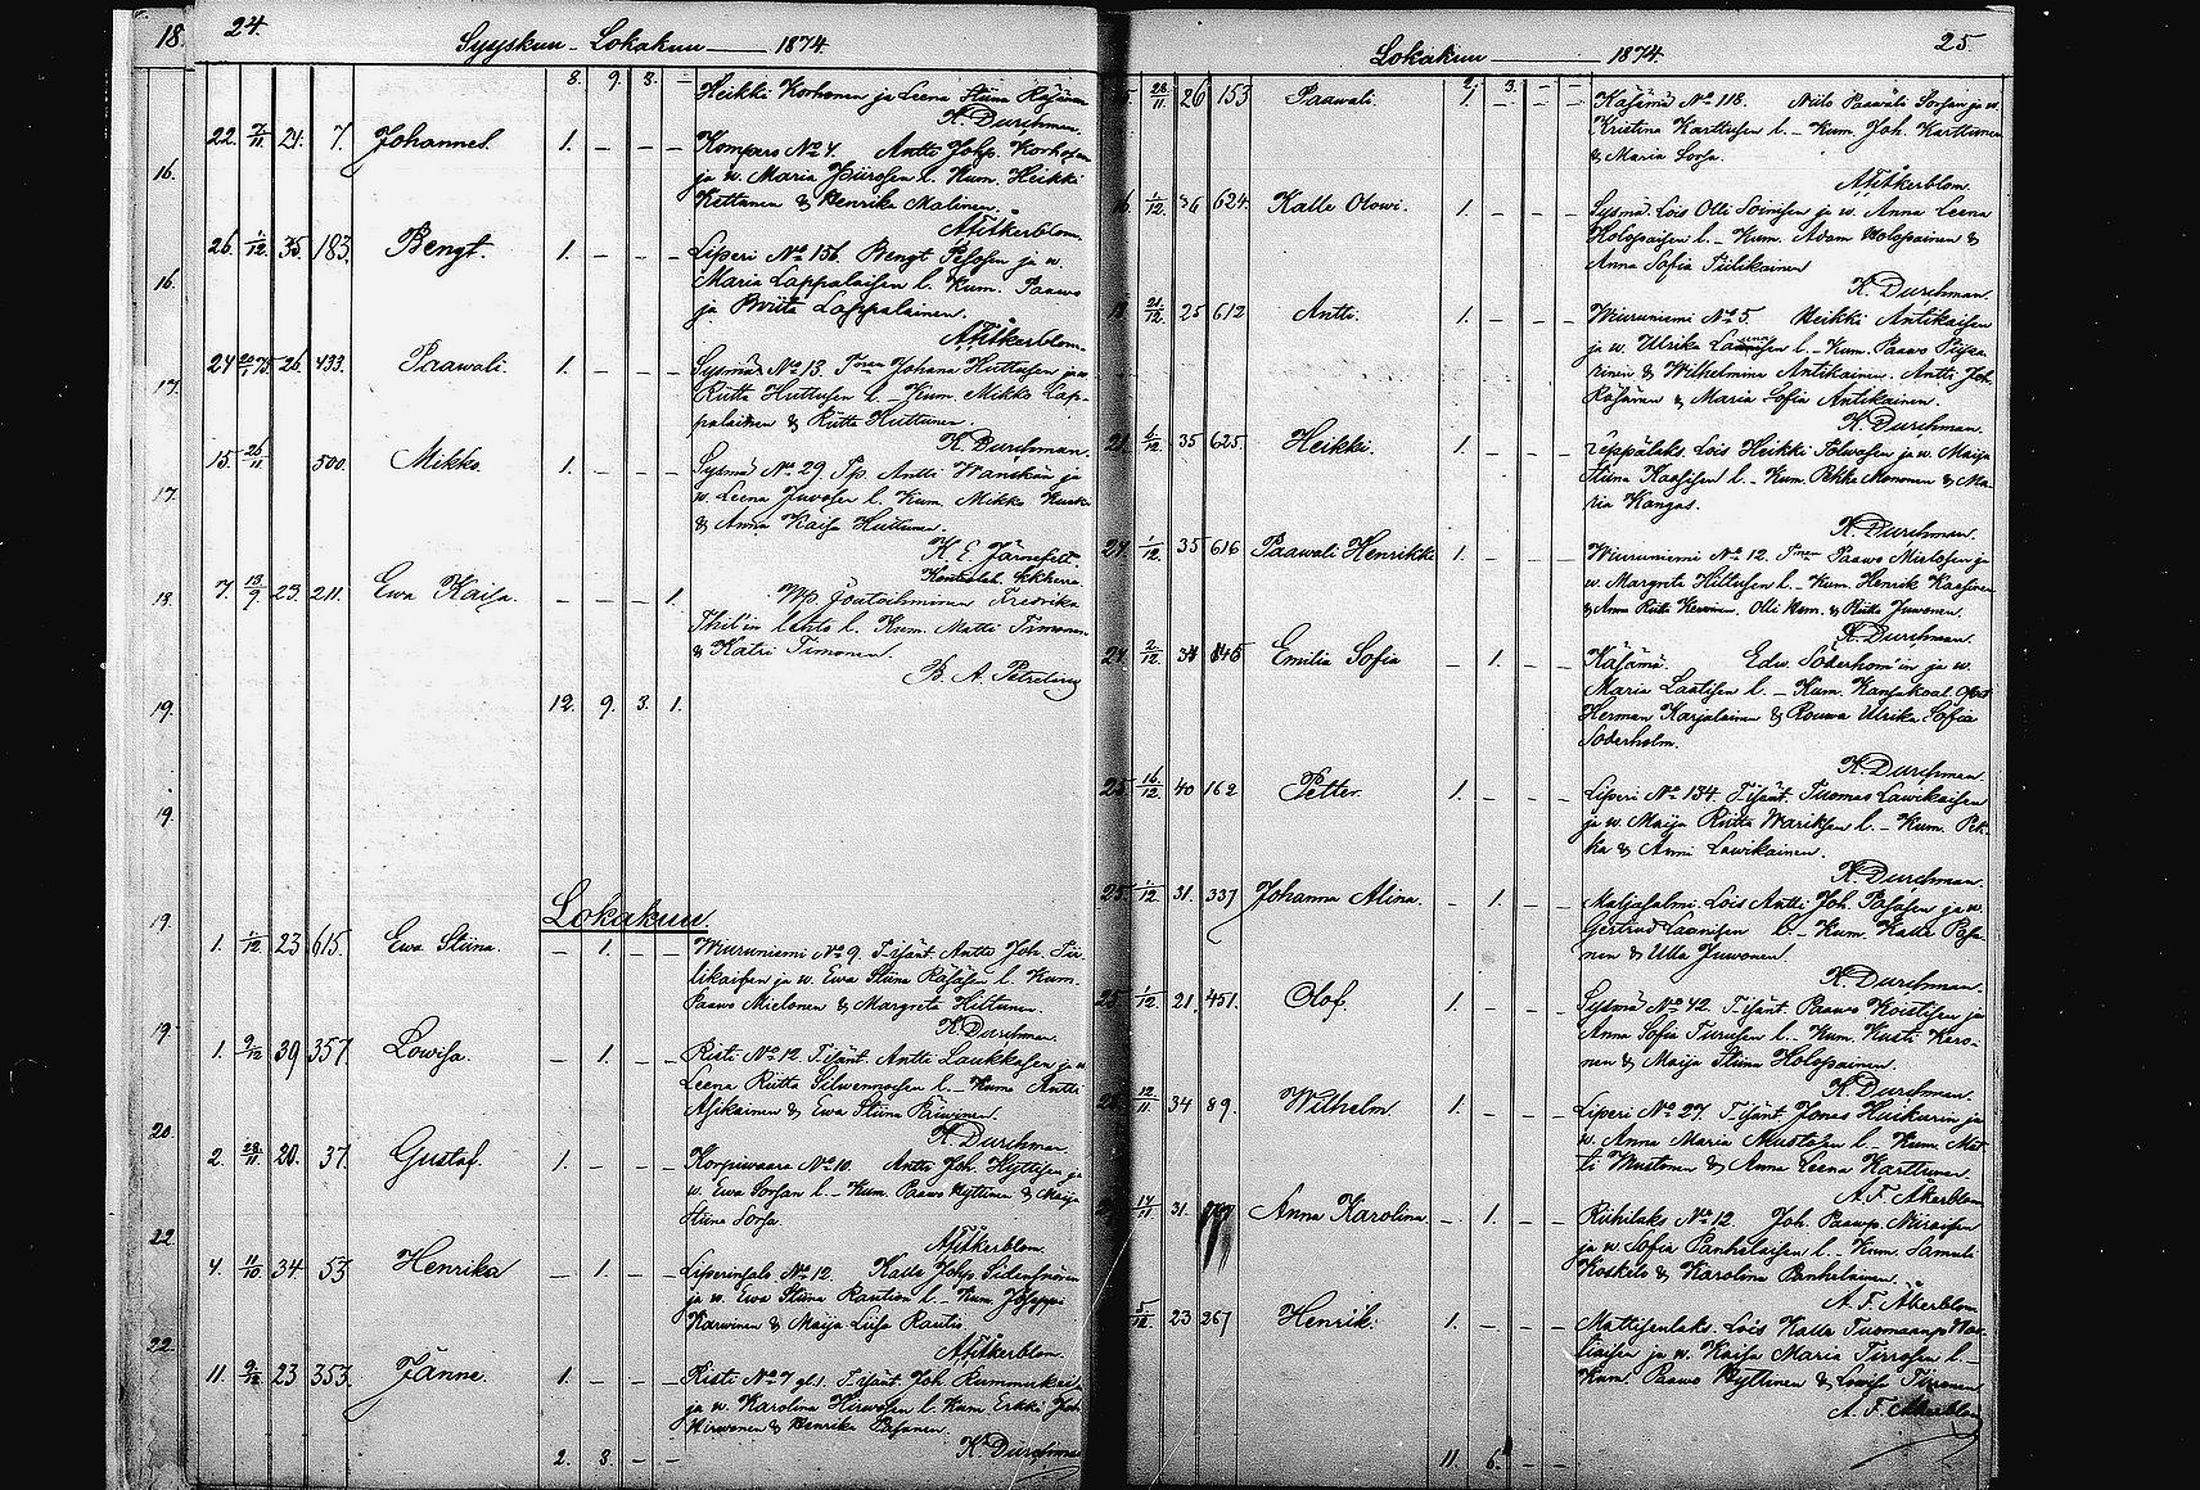 18.
24.
Syyskuu - Lokakuu 1874.
8. 9. 3. -
Heikki Korhonen ja Leena Stiina Räsänen
K. Durchman.
22. 7/11 24. 7. Johannes. 1. - - - Kompero No 4. Antti Johp. Korhosen
ja w. Maria Piirosen l. Kum. Heikki
Kettunen & Henrika Malinen.
A F Åkerblom.
26. 1/12 35. 183. Bengt. 1. - - - Liperi No 156. Bengt Pesosen ja w.
Maria Lappalaisen l. Kum. Paawo
ja Briita Lappalainen.
A F Åkerblom.
24 20/1 75. 26. 433. Paawali. 1. - - - Sysmä No 13. Johana Huttusen ja w.
Riitta Huttusen l. - Kum. Mikko Lap-
palainen & Riitta Huttunen.
K. Durchman.
15. 26/11 500. Mikko. 1. - - - Sysmä No 29. Tp. Antti Wanskan ja
w. Leena Juwosen l. Kum. Mikko
& Anna Kaisa Huttunen.
K. E. Järnefelt.
7. 13/9 23. 211. Ewa Kaisa. - - - 1. Fredrika
lehto l. Kum. Matti Timonen
& Katri Timonen.
B. A. Petrelius
12. 9. 3. 1.
Lokakuu.
1. 1/12 23 615. Ewa Stiina. - 1. - - Wiuruniemi No 9. T-isänt. Antti Joh. Tii-
likaisen ja w. Ewa Stiina Räsäsen l. Kum.
Paawo Mielonen & Margreta Hiltunen.
K. Durchman.
1. 9/12 39 357. Lowisa. - 1. - - Risti No 12. T-isänt. Antti Laukkasen ja w
Leena Riitta Silwennoisen l. - Kum. Antti
Asikainen & Ewa Stiina Päiwinen.
K. Durchman.
2. 28/11 20. 37. Gustaf. 1. - - - Korpiwaara No 10. Antti Joh. Hyttisen ja
w. Ewa Sorsan l. - Kum. Paawo Hyttinen & Maija
Stiina Sorsa.
A F Åkerblom.
4. 11/10 34. 53 Henrika - 1. - - Liperinsalo No 12. Kalle Johp.
ja w. Ewa Stiina Raution l. - Kum. Joseppi
Karwinen & Maija Liisa Rautio.
A F Åkerblom.
11. 9/12 23 353. Jänne. 1. - - - Risti No 7 T-isänt. Joh. Rummukai
ja w. Karolina Hirwosen l. Kum. Erkki Joh
Hirwonen & Henrika Pasanen.
K. Durchman
2. 3. - -
Lokakuu 1874.
25.
2. 3. - -
28/11 26 153 Paawali. 1. - - - Käsämä No 118. Niilo Paawali Sorsan ja w.
Kristina Karttusen l. - Kum. Joh. Karttunen
& Maria Sorsa.
A F Åkerblom.
16. 1/12. 36 624. Kalle Olowi. 1. - - - Sysmä. Lois Olli Soinisen ja w. Anna Leena
Holopaisen l. - Kum. Adam Holopainen &
Anna Sofia Tiilikainen
K. Durchman.
21/12. 25 612 Antti. 1. - - - Wiuruniemi No 5. Heikki Antikaisen
ja w. Ulrika l. - Kum. Paawo Piiska-
rinen & Wilhelmina Antikainen. Antti Joh.
Räsänen & Maria Sofia Antikainen.
K. Durchman.
21. 6/12. 35 625. Heikki. 1. - - - Leppälaks. Lois Heikki Tolwasen ja w. Maija
Stiina Kaasisen l. - Kum. Pekka Mononen & Ma-
ria Kangas.
K. Durchman.
24. 1/12. 35 616 Paawali Henrikki 1. - - - Wiuruniemi No 12. Paawo Mielosen ja
w. Margreta Hiltusen l. - Kum. Henrik Kaasinen
& Anna Riitta Kerwinen. Olli & Riitta Juwonen.
K. Durchman.
24. 2/12. 34 845 Emilia Sofia - 1. - - Käsämä. Edw. Söderhom'in ja w.
Maria Laatisen l. - Kum. Kansakoal.
Herman Karjalainen & Rouwa Ulrika Sofia
Söderholm.
K. Durchman.
25. 16/12. 40 162 Petter. 1. - - - Liperi No 134. T-isänt. Tuomas Lawikaisen
ja w. Maija Riitta Wariksen l. - Kum. Pek-
ka & Anni Lawikainen.
K. Durchman.
25. 1/12. 31. 337 Johanna Alina. - 1. - - Maljasalmi. Lois Antti Joh. Pasasen ja w.
Gertrud Laanisen l. - Kum. Kalle Pasa-
nen & Ulla Juwonen.
K. Durchman.
25 1/12. 21. 451. Olof. 1. - - - Sysmä No 42. T-isänt. Paawo Koistisen ja
Anna Sofia Turusen l. - Kum. Kusti Kero-
nen & Maija Stiina Holopainen.
K. Durchman.
28. 12/11. 34 89. Wilhelm. 1. - - - Liperi No 27. T-isänt. Jonas Huikurin ja
w. Anna Maria Mustosen l. - Kum. Mat-
ti Mustonen & Anna Leena Karttunen.
A. F. Åkerblom
14/11. 31. Anna Karolina. - 1. - - Riihilaks No 12. Joh. Paawp. Niiraisen
ja w. Sofia Panhelaisen l. - Kum. Samuli
Koskelo & Karolina Panhelainen.
A. F. Åkerblom
5/12. 23 267 Henrik. 1. - - - Mattisenlaks. Lois Kalle Tuomaanp.
liaisen ja w. Kaisa Maria Tirrosen l. -
Kum. Paawo Hyttinen & Lowisa Tirronen
A. F. Åkerblom
11. 6. - -
16.
16.
17.
17.
18.
19.
19.
19.
19.
20.
22.
22.